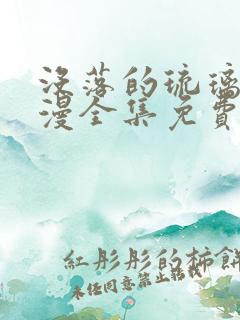 没落的琉璃
漫全集免費
紅彤彤的柿餅
未经同意禁止转载